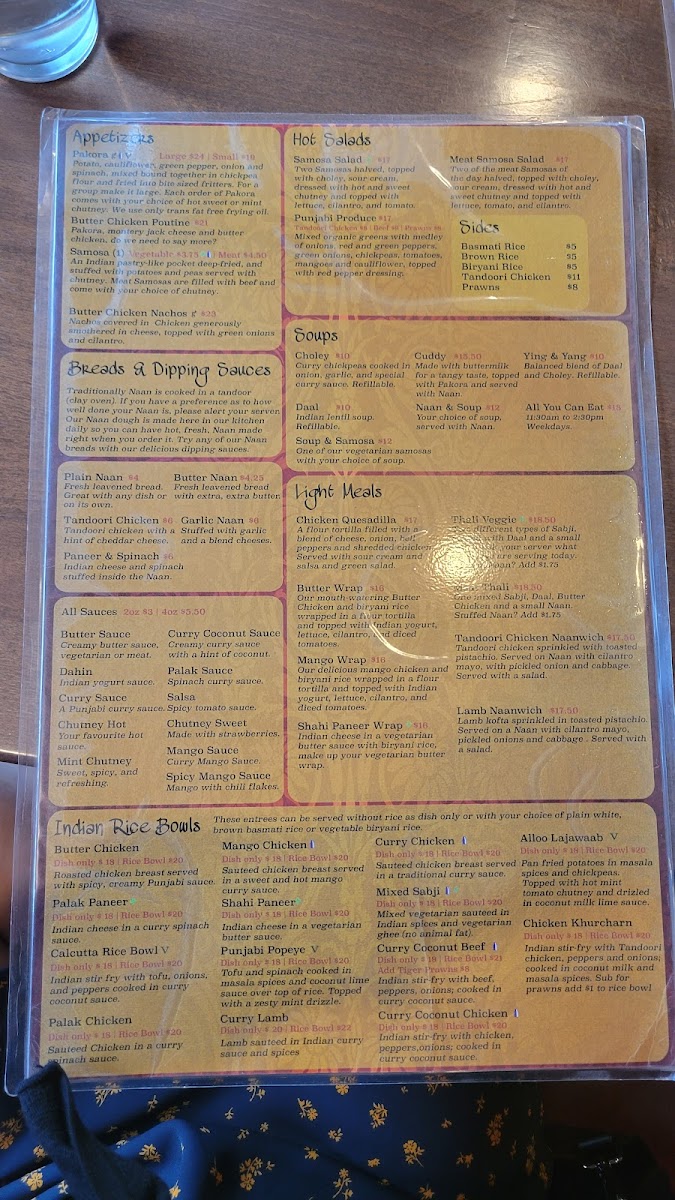 Appetizers
Pakora
Large $24 | Small $16
Potato, cauliflower, green pepper, onion and
spinach, mixed bound together in chickpea
flour and fried into bite sized fritters. For a
group make it large. Each order of Pakora
comes with your choice of hot sweet or mint
chutney. We use only trans fat free frying oil.
Butter Chicken Poutine $21
Pakora, montery jack cheese and butter
chicken, do we need to say more?
Samosa (1) Vegetable $3.75 Meat $4.50
An Indian pastry-like pocket deep-fried, and
stuffed with potatoes and peas served with
chutney. Meat Samosas are filled with beef and
come with your choice of chutney.
Butter Chicken Nachos $23
Nachos covered in Chicken generously
smothered in cheese, topped with green onions
and cilantro.
Breads & Dipping Sauces
Traditionally Naan is cooked in a tandoor
(clay oven). If you have a preference as to how
well done your Naan is, please alert your server.
Our Naan dough is made here in our kitchen
daily so you can have hot, fresh, Naan made
right when you order it. Try any of our Naan
breads with our delicious dipping sauces.
Plain Naan $4
Fresh leavened bread.
Great with any dish or
on its own.
Butter Naan $4.25
Fresh leavened bread
with extra, extra butter.
Tandoori Chicken $6
Tandoori chicken with a
hint of cheddar cheese.
Garlic Naan $6
Stuffed with garlic
and a blend cheeses.
Paneer & Spinach $6
Indian cheese and spinach
stuffed inside the Naan.
All Sauces 2oz $3 | 4oz $5.50
Butter Sauce
Creamy butter sauce,
vegetarian or meat.
Dahin
Indian yogurt sauce.
Curry Sauce
A Punjabi curry sauce.
Chutney Hot
Your favourite hot
sauce.
Mint Chutney
Sweet, spicy, and
refreshing.
Curry Coconut Sauce
Creamy curry sauce
with a hint of coconut.
Palak Sauce
Spinach curry sauce.
Salsa
Spicy tomato sauce.
Chutney Sweet
Made with strawberries.
Mango Sauce
Curry Mango Sauce.
Spicy Mango Sauce
Mango with chili flakes.
Hot Salads
Samosa Salad $17
Two Samosas halved, topped
with choley, sour cream,
dressed with hot and sweet
chutney and topped with
lettuce, cilantro, and tomato.
Punjabi Produce $17
Mixed organic greens with medley
of onions, red and green peppers,
green onions, chickpeas, tomatoes,
mangoes and cauliflower, topped
with red pepper dressing.
Meat Samosa Salad $17
Two of the meat Samosas of
the day halved, topped with choley,
sour cream, dressed with hot and
sweet chutney and topped with
lettuce, tomato, and cilantro.
Sides
Basmati Rice $5
Brown Rice $5
Biryani Rice $5
Tandoori Chicken $11
Prawns $8
Soups
Choley $10
Curry chickpeas cooked in
onion, garlic, and special
curry sauce. Refillable.
Cuddy $13.50
Made with buttermilk
for a tangy taste, topped
with Pakora and served
with Naan.
Ying & Yang $10
Balanced blend of Daal
and Choley. Refillable.
Daal $10
Indian lentil soup.
Refillable.
Naan & Soup $12
Your choice of soup,
served with Naan.
All You Can Eat $15
11:30am to 2:30pm
Weekdays.
Soup & Samosa $12
One of our vegetarian samosas
with your choice of soup.
Light Meals
Chicken Quesadilla $17
A flour tortilla filled with a
blend of cheese, onion, bell
peppers and shredded chicken
Served with sour cream and
salsa and green salad.
Butter Wrap $16
Our mouth-watering Butter
Chicken and biryani rice
wrapped in a flour tortilla
and topped with Indian yogurt,
lettuce, cilantro, and diced
tomatoes.
Mango Wrap $16
Our delicious mango chicken and
biryani rice wrapped in a flour
tortilla and topped with Indian
yogurt, lettuce, cilantro, and
diced tomatoes.
Shahi Paneer Wrap $16
Indian cheese in a vegetarian
butter sauce with biryani rice,
make up your vegetarian butter
wrap.
Thali Veggie $18.50
different types of Sabji,
with Daal and a small
your server what
are serving today.
Add $1.75
Thali $18.50
One mixed Sabji, Daal, Butter
Chicken and a small Naan.
Stuffed Naan? Add $1.75
Tandoori Chicken Naanwich $17.50
Tandoori chicken sprinkled with toasted
pistachio. Served on Naan with cilantro
mayo, with pickled onion and cabbage.
Served with a salad.
Lamb Naanwich $17.50
Lamb kofta sprinkled in toasted pistachio.
Served on a Naan with cilantro mayo,
pickled onions and cabbage . Served with
a salad.
Indian Rice Bowls
These entrees can be served without rice as dish only or with your choice of plain white,
brown basmati rice or vegetable biryani rice.
Butter Chicken
Dish only $ 18 | Rice Bowl $20
Roasted chicken breast served
with spicy, creamy Punjabi sauce.
Palak Paneer
Dish only $ 18 | Rice Bowl $20
Indian cheese in a curry spinach
sauce.
Calcutta Rice Bowl V
Dish only $ 18 | Rice Bowl $20
Indian stir fry with tofu, onions,
and peppers cooked in curry
coconut sauce.
Palak Chicken
Dish only $ 18 | Rice Bowl $20
Sauteed Chicken in a curry
spinach sauce.
Mango Chicken
Dish only $ 18 | Rice Bowl $20
Sauteed chicken breast served
in a sweet and hot mango
curry sauce.
Shahi Paneer
Dish only $ 18 | Rice Bowl $20
Indian cheese in a vegetarian
butter sauce.
Punjabi Popeye V
Dish only $ 18 | Rice Bowl $20
Tofu and spinach cooked in
masala spices and coconut lime
sauce over top of rice. Topped
with a zesty mint drizzle.
Curry Lamb
Dish only $ 20 | Rice Bowl $22
Lamb sauteed in Indian curry
sauce and spices
Curry Chicken
Dish only $ 18 | Rice Bowl $20
Sauteed chicken breast served
in a traditional curry sauce.
Mixed Sabji
Dish only $ 18 | Rice Bowl $20
Mixed vegetarian sauteed in
Indian spices and vegetarian
ghee (no animal fat).
Curry Coconut Beef
Dish only $ 18 | Rice Bowl $21
Add Tiger Prawns $8
Indian stir-fry with beef,
peppers, onions; cooked in
curry coconut sauce.
Curry Coconut Chicken
Dish only $ 18 | Rice Bowl $20
Indian stir-fry with chicken,
peppers,onions; cooked in
curry coconut sauce.
Alloo Lajawaab V
Dish only $ 18 | Rice Bowl $20
Pan fried potatoes in masala
spices and chickpeas.
Topped with hot mint
tomato chutney and drizled
in coconut milk lime sauce.
Chicken Khurcharn
Dish only $ 18 | Rice Bowl $20
Indian stir-fry with Tandoori
chicken, peppers and onions;
cooked in coconut milk and
masala spices. Sub for
prawns add $1 to rice bowl